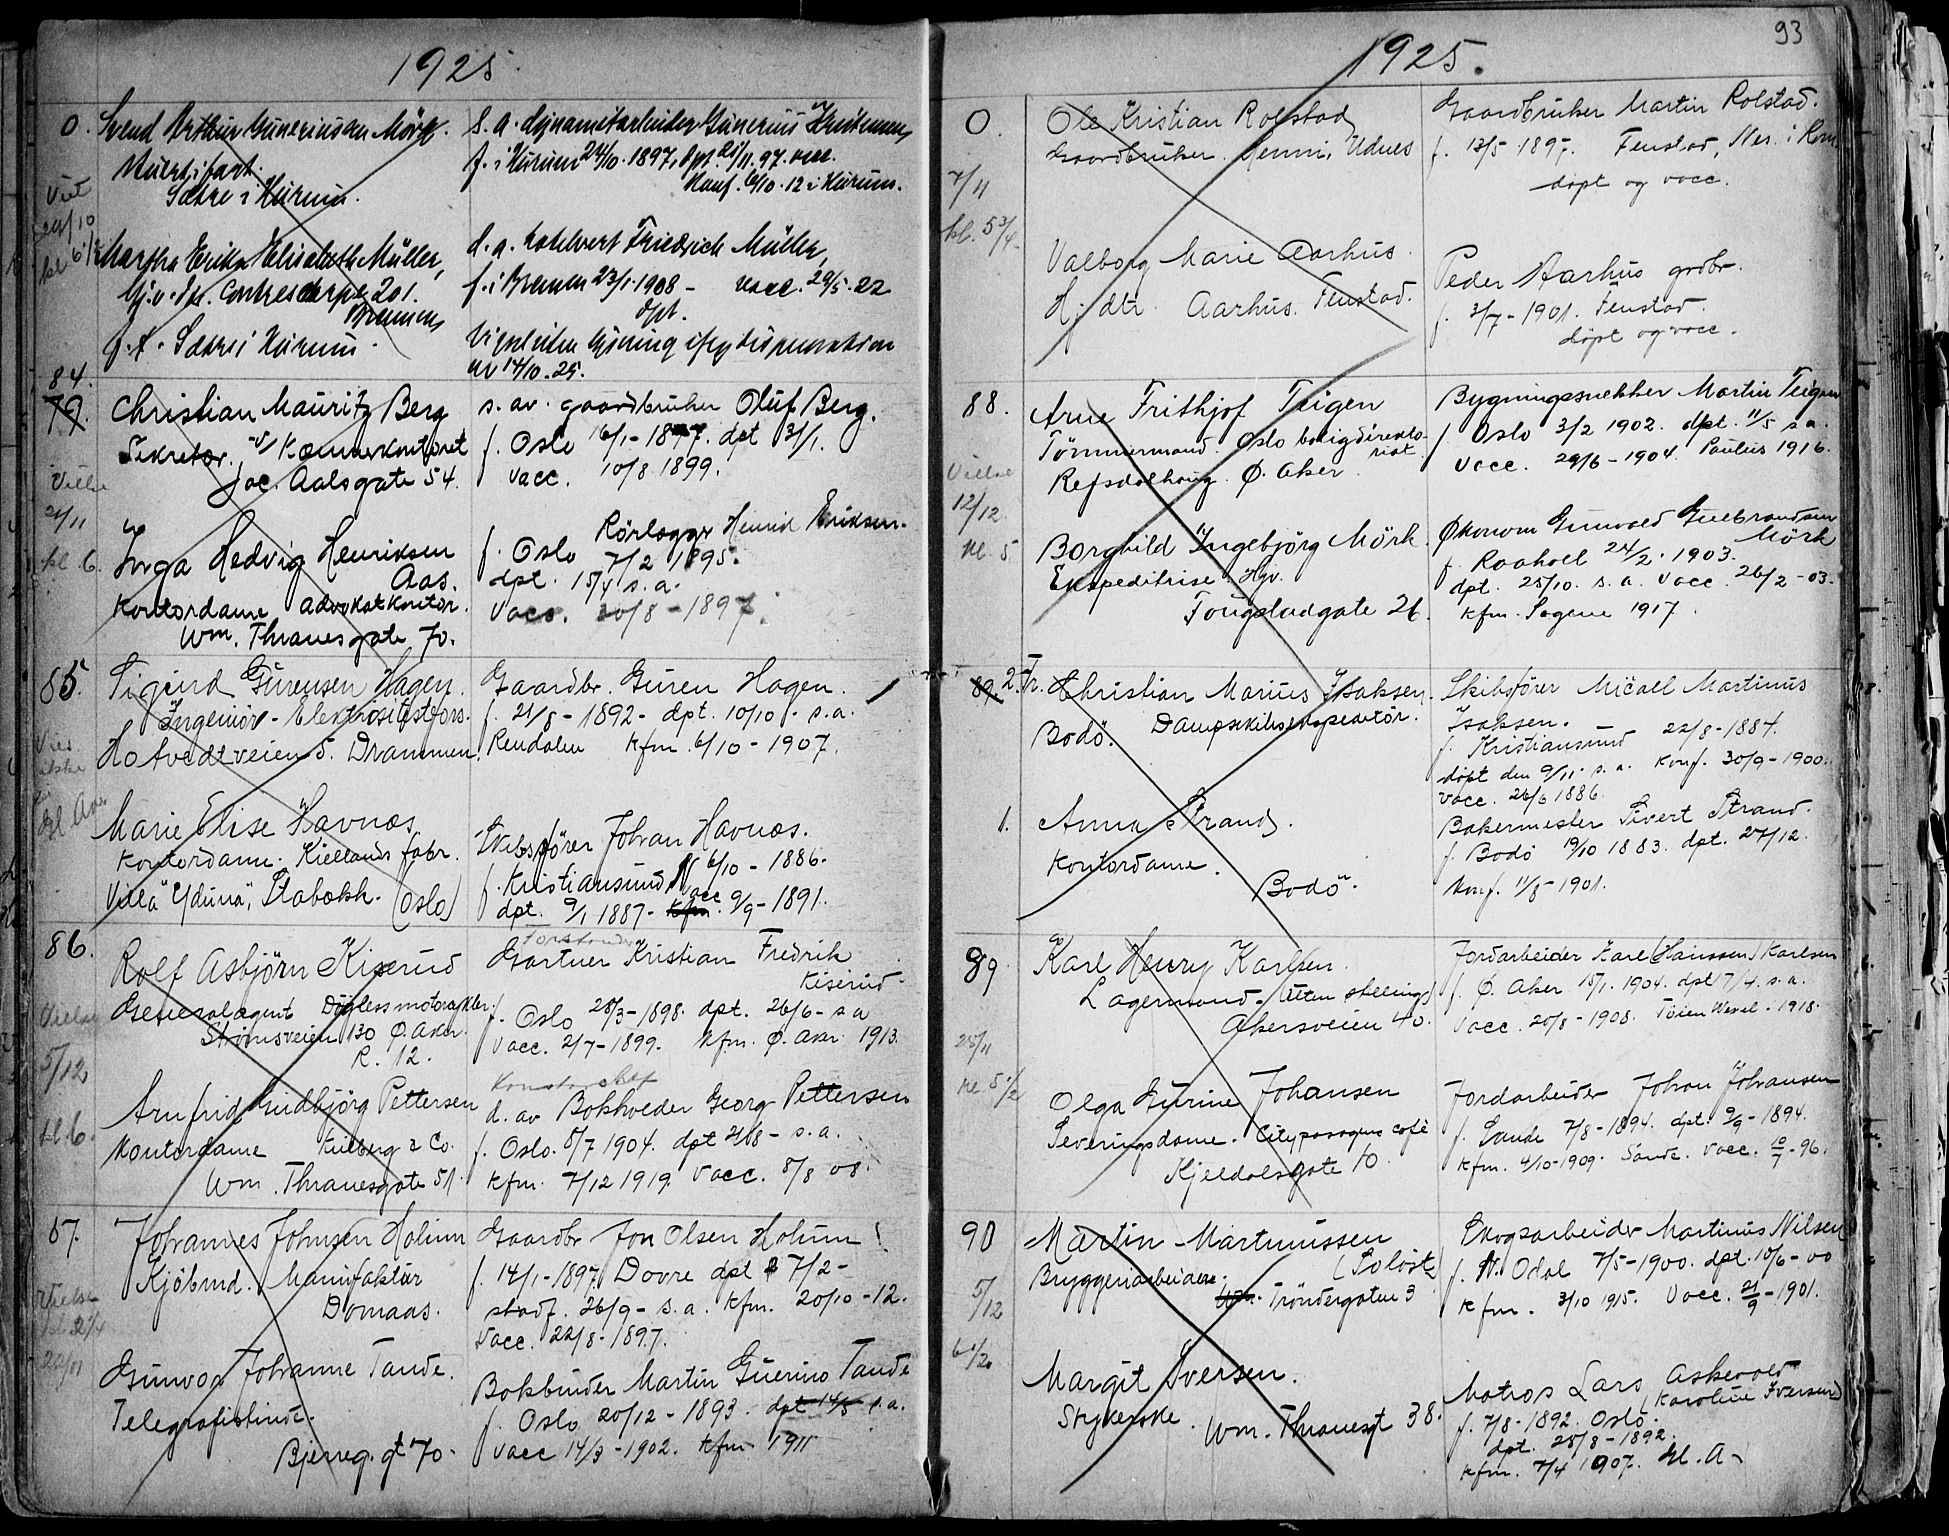 1925.
0.
Svend Arthur Gunerinsen Mörk.
S. a. dynamitarbeider Gunerius Kristensen,
f. i Hurum 24/10. 1897, dpt. 21/11. 97. vacc.
Sætre i Hurum.
Konf. 6/10. 12 i Hurum.
Viet
29/10
kl 6 1/2
Martha Erika Elisabeth Müller,
d. a. Friedrich Müller,
Contrescarpe 201.
f. i Bremen 23/1. 1908 - vacc. 29/5. 22
Bremen
dpt.
f. t. Sætre i Hurum.
lysning iflg dispensation
av 14/10. 25.
84.
79.
Christian Mauritz Berg
s. av. gaardbruker Oluf Berg.
Sekretær v/ Kæmnerkontoret
f. Oslo 16/1 - 1877. dpt 31/1.
Jac. Aalsgate 54.
vacc. 10/8 1899.
Vielse
21/11
kl 6.
Inga Hedvig Henriksen
Rörlægger Henrik Eriksen.
Aas.
f. Oslo 7/2 1895.
dpt. 15/4 s. a.
Kontordame Advokatkontor.
vacc. 20/8 - 1897.
Wm. Thranesgate 70.
85.
Sigurd Gurensen Hagen.
Gaardbr. Guren Hagen.
Ingeniör - Elektrisitetsfors.
f. 21/8 - 1892 - dpt. 10/10 - s. a.
Hotvedtveien 5. Drammen.
Rendalen kfm. 6/10 - 1907.
Marie Elise Havnæs
Skibsförer Johan Havnæs.
Kontordame. Kiellands fabr.
f. Kristiansund N 6/10 - 1886.
Villa "Yduna", Stabækk. (Oslo)
dpt. 9/1 1887 - kfm. vacc 9/9 - 1891.
86.
Forstander
Rolf Asbjörn Kiserud
Gartner Kristian Fredrik
Kiserud.
Generalagent Döglassmotorcykler.
f. Oslo 28/3 - 1898. dpt. 26/6 - s a
Strömsveien 130 Ö. Aker.
vacc. 2/7 - 1899. kfm. Ö. Aker 1913.
R. 12.
Vielse
5/12
kl. 6.
Kontorchef
Arnfrid Gudbjörg Pettersen
d. av Bokholder Georg Pettersen
Kontordame Kulberg & Co.
f. Oslo. 5/7 1904. dpt 21/8 - s. a.
Wm. Thranesgate 51.
kfm. 7/12 1919. vacc. 8/8 08.
87.
Johannes Johnsen Holum
Gaardbr Jon Olsen Holum
Kjöbmd. Manufaktur
f. 14/1 - 1897 Dovre dpt 7/2 -
Domaas.
stadf. 26/9 - s. a. kfm. 20/10 - 12.
vacc. 22/8 - 1897.
Vielse
Gunvor Johanne Tande.
Bokbinder Martin Guerino Tande
Telegrafistinde.
f. Oslo 20/12 - 1893 dpt 14/5 s. a.
Bjerreg. gt 70.
vacc 14/3 - 1902. kfm 1911
93
1925.
0.
Ole Kristian Rolstad
Gaardbruker Martin Rolstad.
Gaardbruker. Henni, Udnes
f. 13/5 1897. Fenstad, Nes. i Rom.
döpt og vacc.
7/11
kl. 5 3/4
Valborg Marie Aarhus.
Peder Aarhus grdbr.
Hj. dtr. Aarhus. Fenstad.
f. 3/7 - 1901. Fenstad.
döpt og vacc.
88.
Arne Frithjof Teigen
Bygningssnekker Martin Teigen
Tömmermand. Oslo boligdirekto-
riat.
f. Oslo 3/2 1902. dpt. 11/5 s a.
Refsdalhaug. Ö. Aker.
vacc. 29/6 - 1904. Paulus 1916.
Vielse
12/12
kl. 5
Borghild Ingebjörg Mörk.
Økonom Gunvald Gulbrandsen
Mörk
Ekspeditrise. Hjv.
f. Raaholt 24/2. 1903.
dpt. 25/10. s. a. vacc. 26/2 - 03.
Fougstadgate 26.
kfm. Sagene 1917.
89. 2. Fr.
Christian Marius Isaksen.
Skibsförer Micael Martinus
Isaksen.
Bodö. Dampskibsexpeditör.
f. Kristiansund 22/8 - 1884.
döpt den 9/11. s. a. Konf. 30/9 - 1900.
vacc. 26/6 1886.
1.
Anna Strand.
Bakermester Sivert Strand.
Kontordame.
f. Bodö 19/10 1883. dpt. 27/12.
Bodö.
Konf. 11/8 - 1901.
89
Karl Henry Karlsen.
Jordarbeider Karl (Hanssen) Karlsen
Lagermand. (Uten stilling)
f. Ö. Aker 15/1. 1904. dpt 17/4. s. a.
Akersveien 40.
vacc. 20/8 - 1908. Töien Wexel. 1918.
25/11
kl 5 1/2
Olga Gurine Johansen
Jordarbeider Johan Johansen
Serveringsdame. Citypassagens café
f. Sande 7/8 - 1894. dpt. 9/9 - 1894.
Kjeldalsgate 10.
kfm. 4/10 - 1909. Sande. vacc. 10/7 - 96.
90
Martin Martinussen
Skogsarbeider Martinus Nilsen
(Solöst)
Bryggeriarbeider.
f. N. Odal 7/5 - 1900. dpt. 10/6 - 00
Tröndergaten 3
kfm. 3/10 1915. vacc. 21/9 - 1901.
5/12
6 1/2
Margit Iversen.
Matros Lars Askevold
(Karoline Iversen)
Strykerske. Wm. Thranesgt 38.
f. 7/8 - 1892. Oslo.
dpt. 28/8 - 1892.
kfm. 7/4 1907. Gl. A -